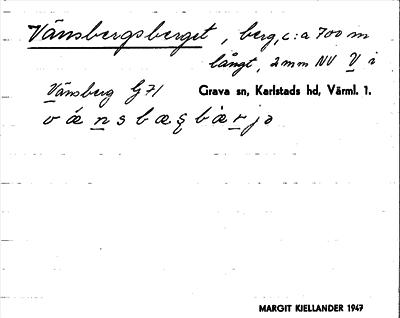 Vänsbergsberget, berg, c:a 700 m
långt, 2 mm NV V i
Vänsberg G71 Grava sn, Karlstads hd, Värml. 1.
MARGIT KJELLANDER 1947